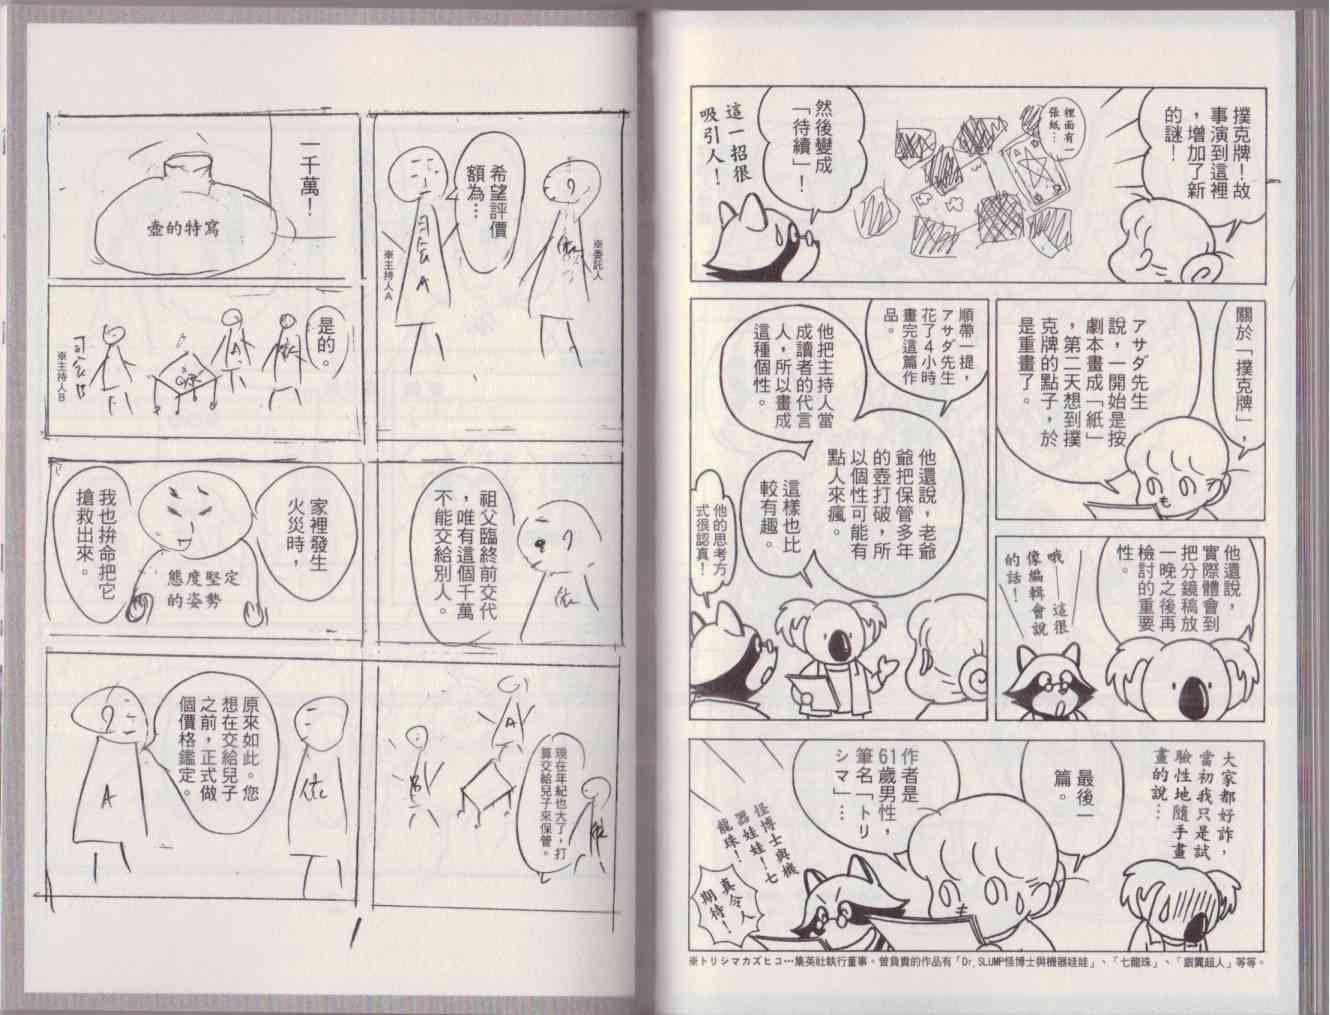 撲克牌！故
事演到這裡
，增加了新
的謎！
裡面有一
張紙…
然後變成
「待續」！
這一招很
吸引人！
關於「撲克牌」，
アサダ先生
說，一開始是按
劇本畫成「紙」
，第二天想到撲
克牌的點子，於
是重畫了。
他還說，
實際體會到
把分鏡稿放
一晚之後再
檢討的重要
性。
哦——這很
像編輯會說
的話！
順帶一提，
アサダ先生
花了4小時
畫完這篇作
品。
他把主持人當
成讀者的代言
人，所以畫成
這種個性。
他還說，老爺
爺把保管多年
的壺打破，所
以個性可能有
點人來瘋。
這樣也比
較有趣。
他的思考方
式很認真！
大家都好詐，
當初我只是試
驗性地隨手畫
畫的說…
最後一
篇。
作者是
61歲男性，
筆名「トリ
シマ」…
怪博士與機
器娃娃！七
龍珠！
真令人
期待！
※トリシマカズヒコ…集英社執行董事。曾負責的作品有「Dr.SLUMP怪博士與機器娃娃」、「七龍珠」、「銀翼超人」等等。
※委託人
依
希望評價
額為…
司会
A
※主持人A
一千萬！
壺的特寫
是的。
依
A
司会B
※主持人B
祖父臨終前交代
，唯有這個千萬
不能交給別人。
依
家裡發生
火災時，
態度堅定
的姿勢
我也拚命把它
搶救出來。
A
B
依
現在年紀也大了，打
算交給兒子來保管。
依
原來如此。您
想在交給兒子
之前，正式做
個價格鑑定。
A
1